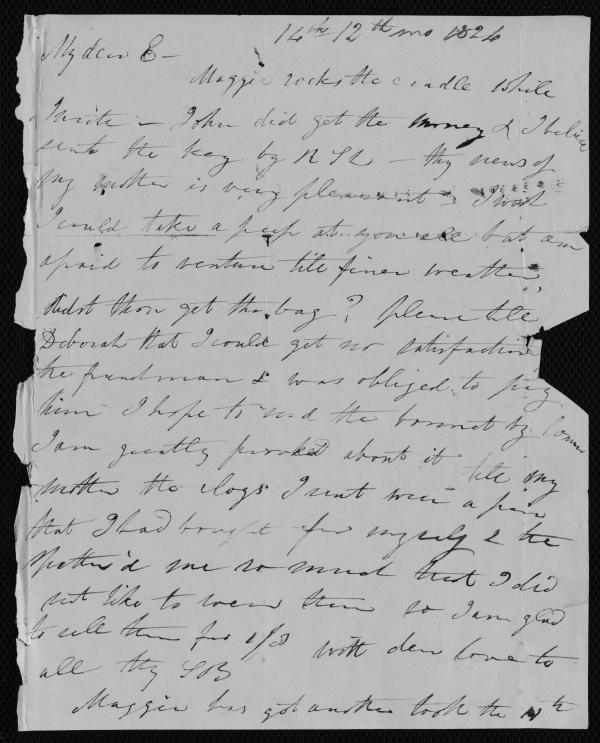 14th 12th mo 1824
My dear E —
Maggie rocks the cradle while
I write — John did get the money & I believe
sent the key by R S L — thy news of
my mother is very pleasant — I wish
I could take a peep at you all but am
afraid to venture till finer weather,
didst thou get the bag? please tell
Deborah that I could get no satisfaction
the man & was obliged to pay
him I hope to send the bonnet by
I am greatly provoked about it tell my
mother the clogs I sent were a pair
that I had bought for myself & the
spatter'd me so much that I did
not like to wear them so I am glad
to sell them for with dear love to
all thy SB
Maggie has got another tooth the